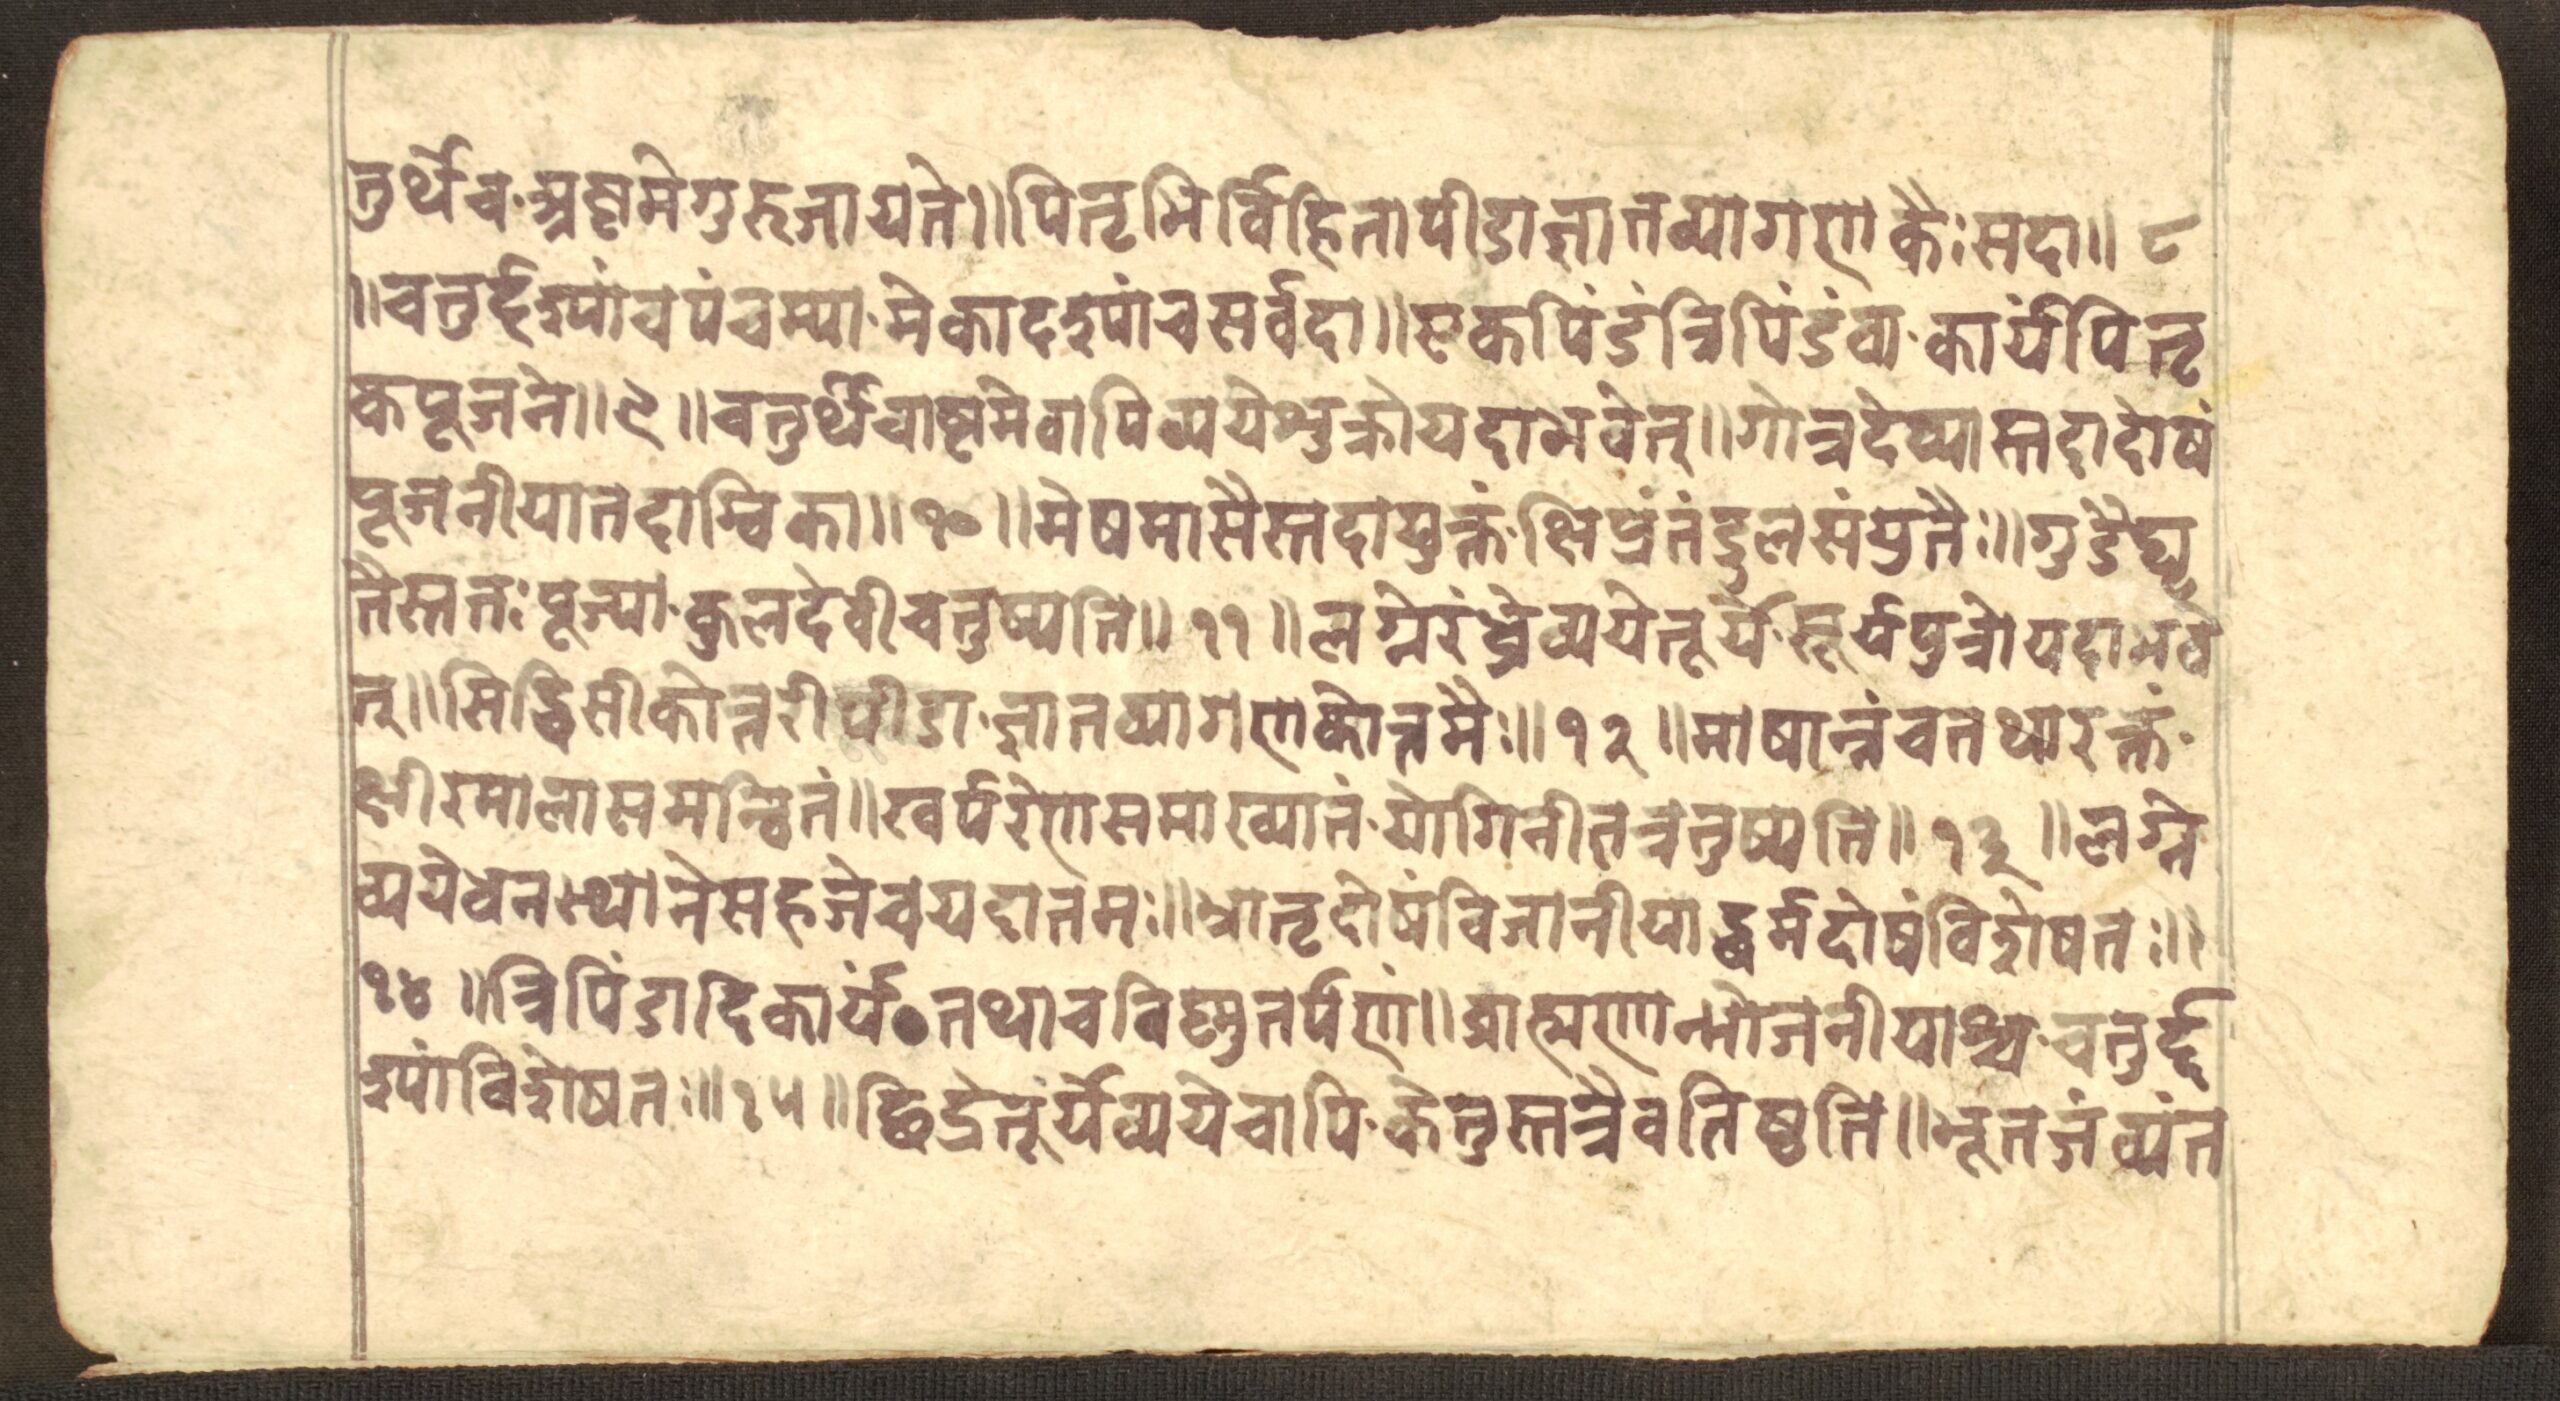 तुर्थेच॰अष्टमेगुरुजायते॥पितृभिर्विहितापीडाज्ञातव्यागणकैःसदा॥८
॥चतुर्द्दश्यांचपंचम्या॰मेकादश्यांचसर्वदा॥एकपिंडंत्रिपिंडंवा॰कार्यंपितृ
कपूजने॥९॥चतुर्थेचाष्टमेवापिव्ययेशुक्रोयदाभवेत्॥गोत्रदेव्यास्तदादोषं
पूजनीयातदाम्विका॥१०॥मेषमासैस्तदायुक्तं॰क्षिप्रंतंडुलसंयुतैः॥गुडैघृ
तैस्ततःपूज्या॰कुलदेवीचतुष्यति॥११॥लग्नेरंध्रेव्ययेतूर्ये॰सूर्यपुत्रोयदाभवे
त्॥सिद्धिसीकोत्तरीपीडा॰ज्ञातव्यागणकोत्तमैः॥१२॥माषान्नंचतथारक्तं॰
क्षीरमालासमन्वितं॥खर्परेणसमाख्यातं॰योगिनीतत्रतुष्यति॥१३॥लग्ने
व्ययेधनस्थानेसहजेचयदातमः॥भ्रातृदोषंविजानीयाद्धर्मदोषंविशेषतः॥
१४॥त्रिपिंडादिकार्यं॰तथाचविष्णुतर्पणं॥ब्राह्मणान्भोजनीयाश्च॰चतुर्द्द
श्यांविशेषतः॥१५॥छिद्रेतूर्येव्ययेचापि॰केतुस्तत्रैवतिष्ठति॥भूतजंव्यंत